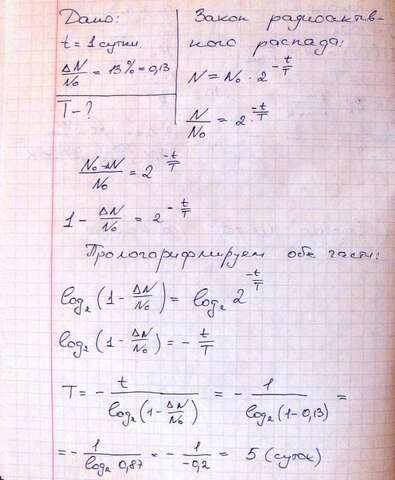 Дано:
t = 1 сутки
ΔN/N₀ = 13% = 0,13
T - ?
Закон радиоактив-
ного распада:
N = N₀ · 2^(-t/T)
N/N₀ = 2^(-t/T)
(N₀-ΔN)/N₀ = 2^(-t/T)
1 - ΔN/N₀ = 2^(-t/T)
Прологорифмируем обе части:
log₂(1 - ΔN/N₀) = log₂ 2^(-t/T)
log₂(1 - ΔN/N₀) = - t/T
T = - t/log₂(1 - ΔN/N₀) = - 1/log₂(1-0,13) =
= - 1/log₂ 0,87 = - 1/-0,2 = 5 (суток)